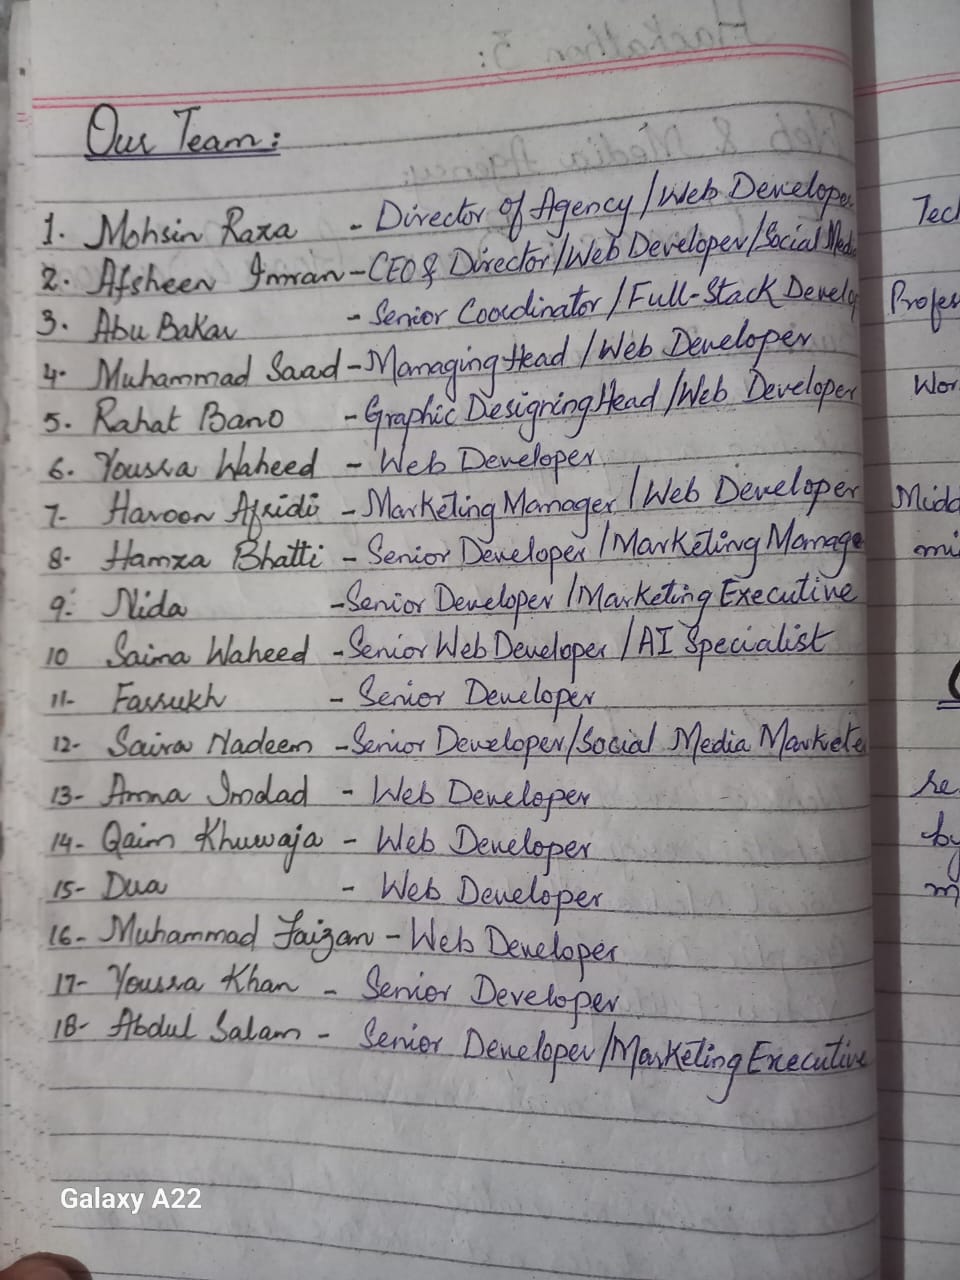 Our Team:
1. Mohsin Raza - Director of Agency / Web Develope
2. Afsheen Imran - CEO & Director / Web Developer / Social Med
3. Abu Bakar - Senior Coordinator / Full-Stack Develop
4. Muhammad Saad - Managing Head / Web Developer
5. Rahat Bano - Graphic Designing Head / Web Developer
6. Yousra Waheed - Web Developer
7- Haroon Afridi - Marketing Manager / Web Developer
8- Hamza Bhatti - Senior Developer / Marketing Manage
9. Nida - Senior Developer / Marketing Executive
10 Saima Waheed - Senior Web Developer / AI Specialist
11- Farrukh - Senior Developer
12- Saira Nadeem - Senior Developer / Social Media Markete
13- Amna Imdad - Web Developer
14- Qaim Khuwaja - Web Developer
15- Dua - Web Developer
16- Muhammad Faizan - Web Developer
17- Yousra Khan - Senior Developer
18- Abdul Salam - Senior Developer / Marketing Executive
Galaxy A22
Tec
Profes
Wor
Midd
mi
by